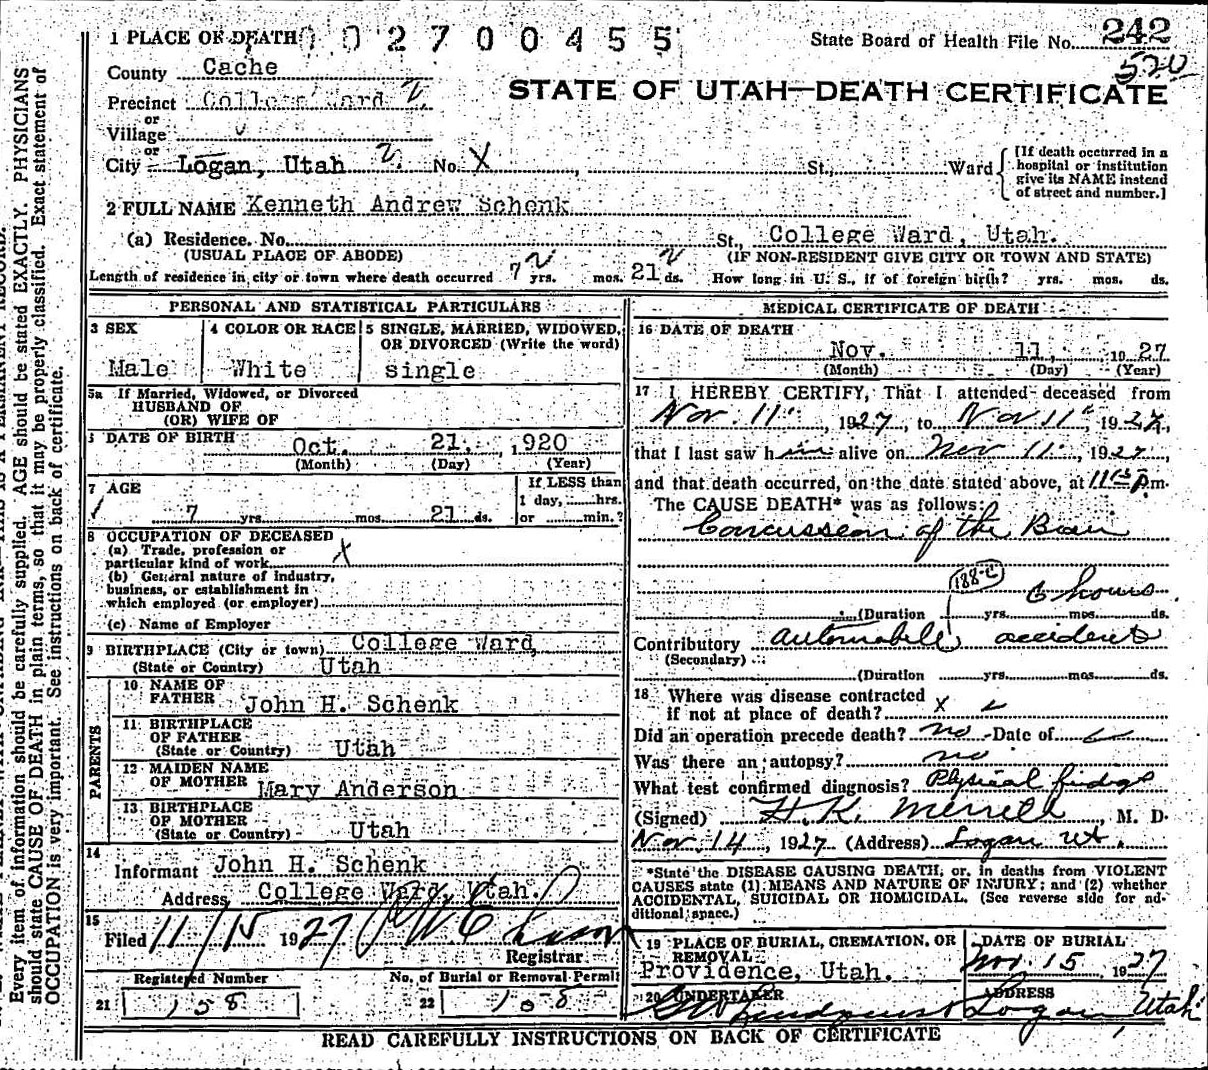 1 PLACE OF DEATH 0 0 2 7 0 0 4 5 5
State Board of Health File No. 242
520
County Cache
STATE OF UTAH—DEATH CERTIFICATE
Precinct College Ward
or
Village
or
City Logan, Utah No. X St., Ward
[If death occurred in a hospital or institution give its NAME instead of street and number.]
2 FULL NAME Kenneth Andrew Schenk
(a) Residence. No. St., College Ward, Utah.
(USUAL PLACE OF ABODE) (IF NON-RESIDENT GIVE CITY OR TOWN AND STATE)
Length of residence in city or town where death occurred 7 yrs. mos. 21 ds. How long in U. S., if of foreign birth? yrs. mos. ds.
PERSONAL AND STATISTICAL PARTICULARS
3 SEX 4 COLOR OR RACE 5 SINGLE, MARRIED, WIDOWED,
OR DIVORCED (Write the word)
Male White single
5a If Married, Widowed, or Divorced
HUSBAND OF
(OR) WIFE OF
DATE OF BIRTH Oct. 21. , 1920
(Month) (Day) (Year)
7 AGE If LESS than
1 day, hrs.
7 yrs. mos. 21 ds. or min.?
8 OCCUPATION OF DECEASED
(a) Trade, profession or
particular kind of work X
(b) General nature of industry,
business, or establishment in
which employed (or employer)
(c) Name of Employer
9 BIRTHPLACE (City or town) College Ward,
(State or Country) Utah
PARENTS
10 NAME OF
FATHER John H. Schenk
11 BIRTHPLACE
OF FATHER
(State or Country) Utah
12 MAIDEN NAME
OF MOTHER Mary Anderson
13 BIRTHPLACE
OF MOTHER
(State or Country) Utah
14
Informant John H. Schenk
Address College Ward, Utah.
15
Filed 11/15 1927
Registrar
Registered Number No. of Burial or Removal Permit
21 158 22 108
MEDICAL CERTIFICATE OF DEATH
16 DATE OF DEATH
Nov. 11, 19 27
(Month) (Day) (Year)
17 I HEREBY CERTIFY, That I attended deceased from
Nov. 11, 1927, to Nov 11, 1927,
that I last saw him alive on Nov 11, 1927
and that death occurred, on the date stated above, at 11 p.m.
The CAUSE DEATH* was as follows:
Concussion of the Brain
188-c
6 hours
(Duration yrs. mos. ds.
Contributory automobile accident
(Secondary)
(Duration yrs. mos. ds.
18 Where was disease contracted
if not at place of death? X
Did an operation precede death? no Date of
Was there an autopsy? no
What test confirmed diagnosis? Physical findgs
(Signed) H. K. Merrill, M. D.
Nov. 14, 1927 (Address) Logan Ut.
*State the DISEASE CAUSING DEATH, or, in deaths from VIOLENT
CAUSES state (1) MEANS AND NATURE OF INJURY; and (2) whether
ACCIDENTAL, SUICIDAL OR HOMICIDAL. (See reverse side for ad-
ditional space.)
19 PLACE OF BURIAL, CREMATION, OR
REMOVAL
Providence, Utah.
DATE OF BURIAL
Nov. 15, 1927
20 UNDERTAKER ADDRESS
Logan Utah
READ CAREFULLY INSTRUCTIONS ON BACK OF CERTIFICATE
Every item of information should be carefully supplied. AGE should be stated EXACTLY. PHYSICIANS
should state CAUSE OF DEATH in plain terms, so that it may be properly classified. Exact statement of
OCCUPATION is very important. See instructions on back of certificate.